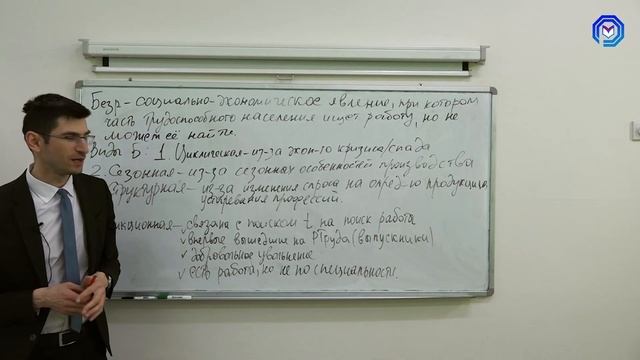 Безр - социально-экономическое явление, при котором
часть трудоспособного населения ищет работу, но не
может её найти.
Виды Б: 1. Циклическая - из-за экон-го кризиса/спада
2. Сезонная - из-за сезонных особенностей производства
структурная - из-за изменения спроса на опред-ю продукцию,
устаревания профессии.
икционная - связана с поиском t на поиск работа
✓ впервые вышедшие на РТруда (выпускники)
✓ добровольное увольнение
✓ есть работа, но не по специальности.